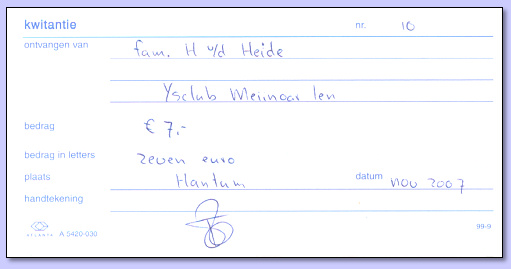 kwitantie nr. 10
ontvangen van fam. H v/d Heide
Ysclub Meinoar len
bedrag € 7,-
bedrag in letters zeven euro
plaats Hantum datum nov 2007
handtekening
ATLANTA A 5420-030 99-9